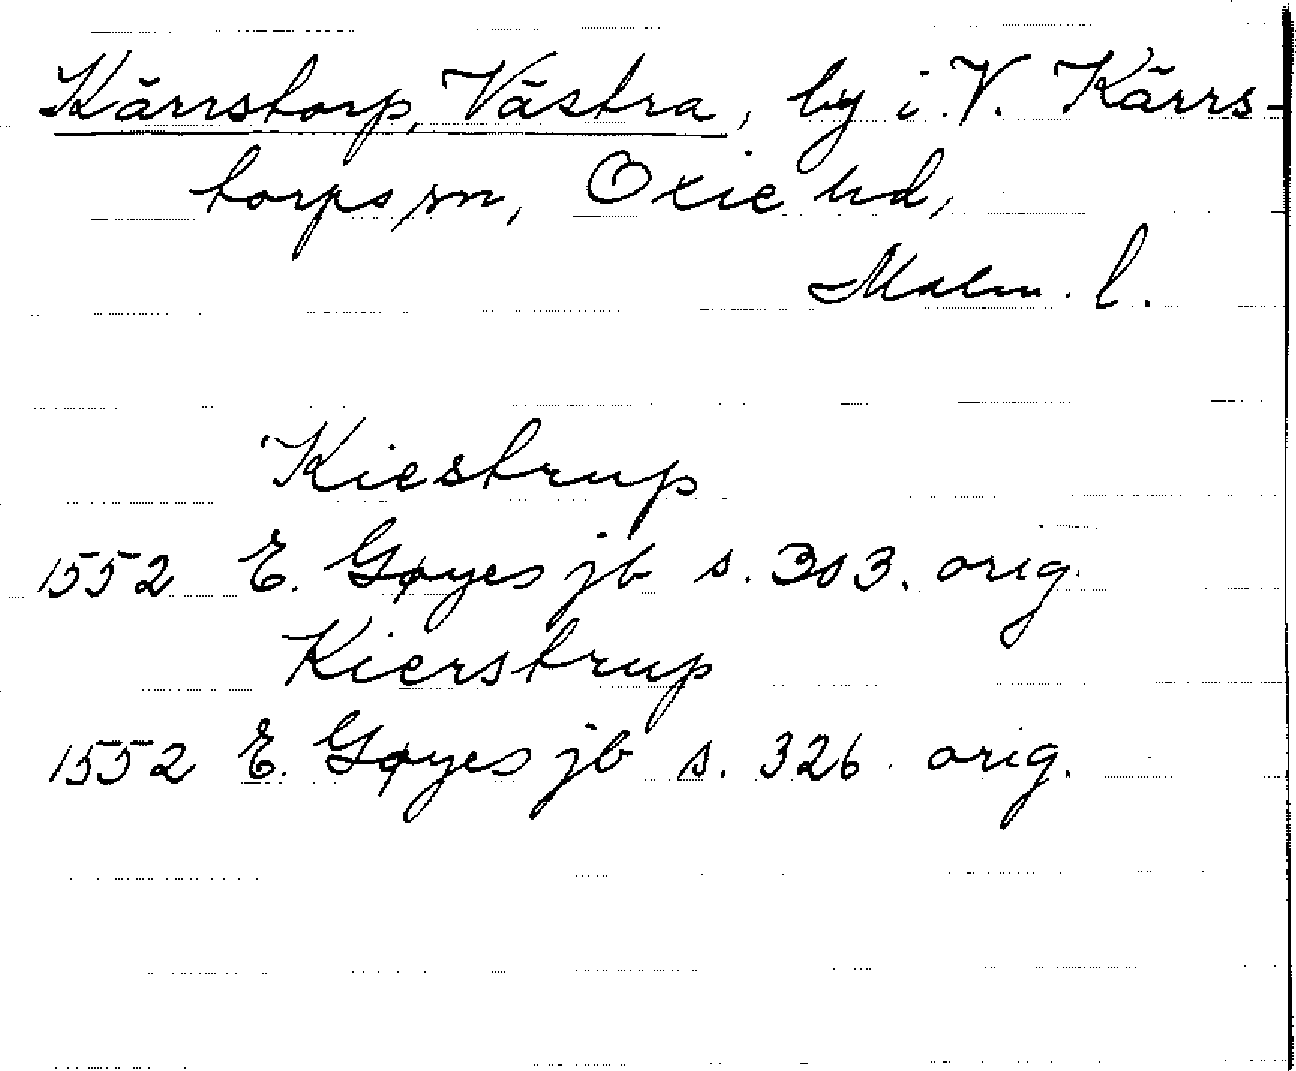 Kärrstorp, Västra, by i V. Kärrs-
torps sn, Oxie hd,
Malm. l.
Kiestrup
1552 E. Gøyes jb s. 303. orig.
Kierstrup
1552 E. Gøyes jb s. 326. orig.